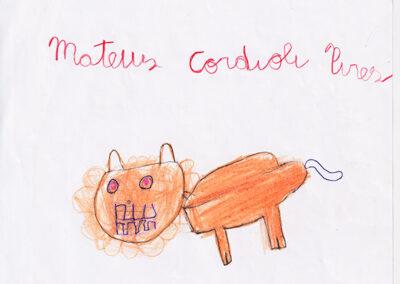 Mateus Cordioli Pires